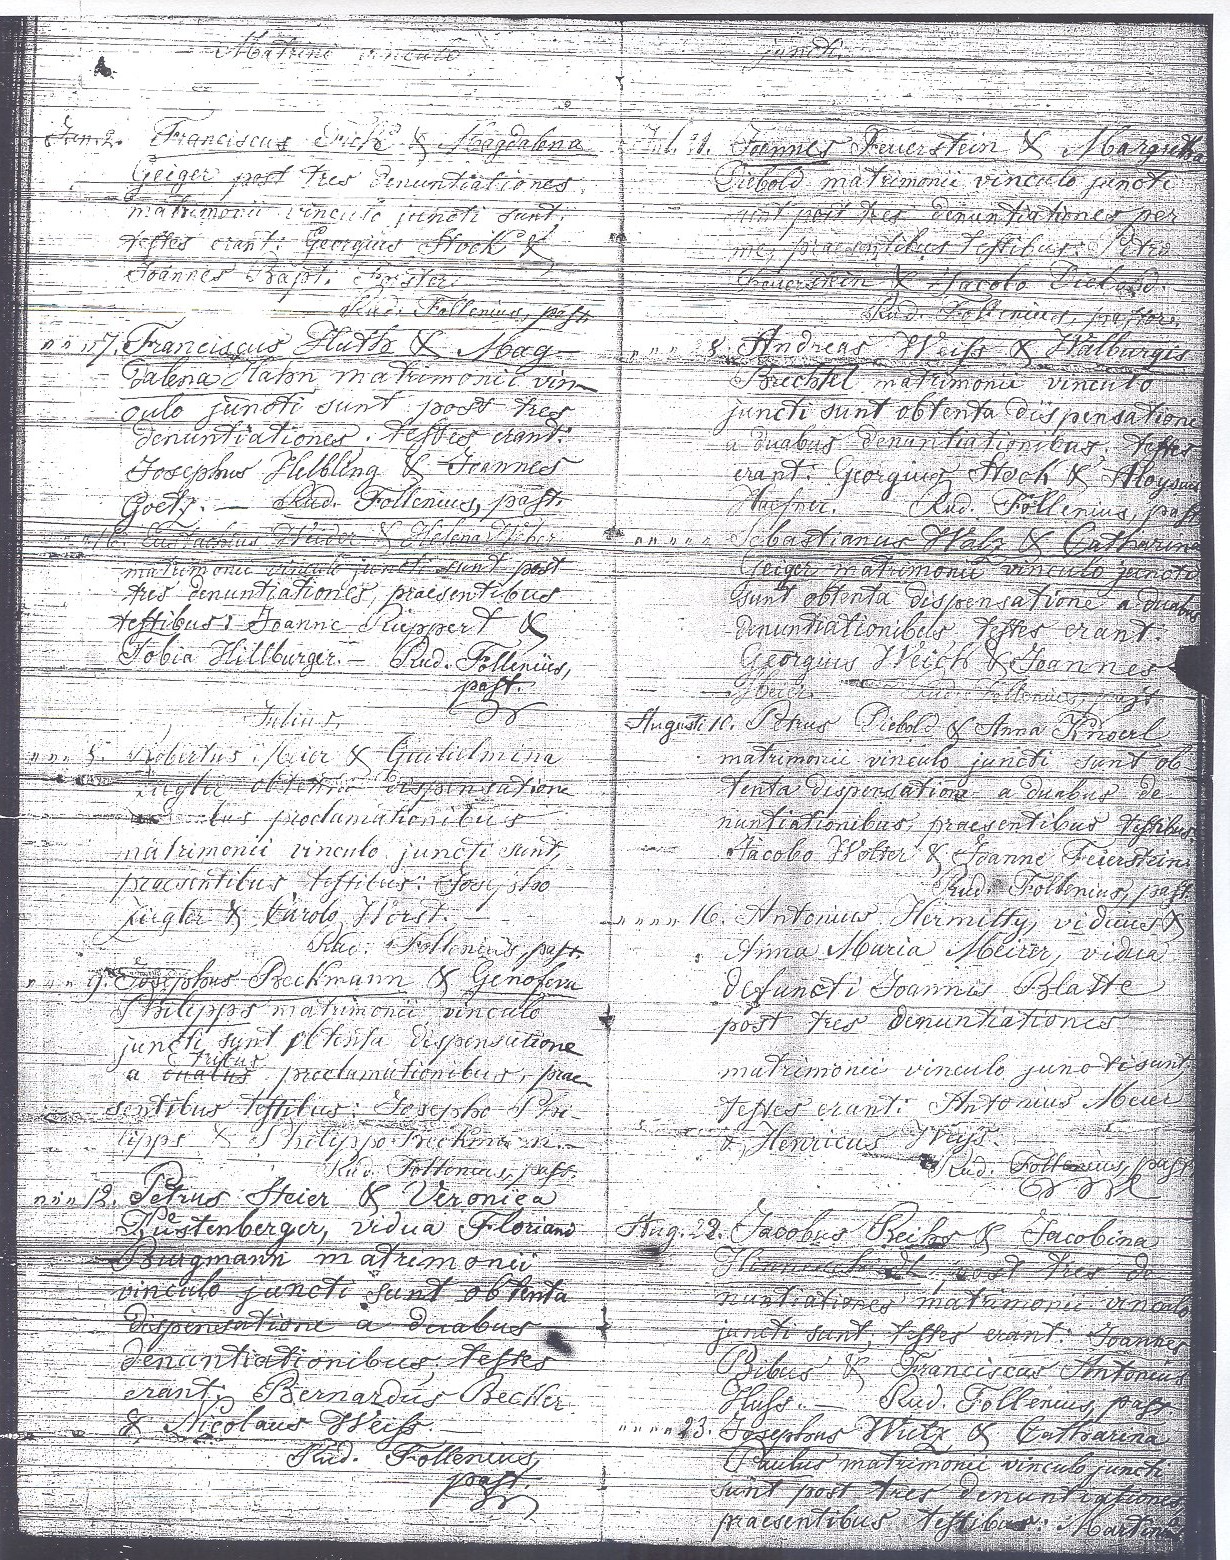 Matrim. vinculo juncti
Jun. 2. Franciscus & Magdalena
Geiger post tres denuntiationes
matrimonii vinculo juncti sunt;
testes erant: Georgius Stock &
Joannes Bapt. Forster.
Rud. Follenius, past.
" " " 7. Franciscus Huth & Mag-
dalena Hahn matrimonii vin
culo juncti sunt post tres
denuntiationes. testes erant:
Josephus Helbling & Joannes
Goetz. — Rud. Follenius, past.
Eustachius & Helena
matrimonii vinculo juncti sunt post
tres denuntiationes, praesentibus
testibus: Joanne Rüppert &
Tobia Hillburger. — Rud. Follenius,
past.
Julius
" " " 5. Robertus Meier & Guilielmina
Ziegler obtenta dispensatione
proclamationibus
matrimonii vinculo juncti sunt,
praesentibus testibus: Josepho
Ziegler & Carolo Horst.
Rud. Follenius, past.
" " " 9. Josephus Beckmann & Genofeva
Philipps matrimonii vinculo
juncti sunt obtenta dispensatione
tribus
a duabus proclamationibus, prae
sentibus testibus: Josepho Phi-
lipps & Philippo Beckmann. —
Rud. Follenius, past.
" " " 12. Petrus Heier & Veronica
Küstenberger, vidua Floriano
Burgmann matrimonii
vinculo juncti sunt obtenta
dispensatione a duabus
denuntiationibus. testes
erant: Bernardus Becker
& Nicolaus Weiss.
Rud. Follenius,
past.
Jul. 21. Joannes Feuerstein & Margretha
Diebold matrimonii vinculo juncti
sunt post tres denuntiationes per
me, praesentibus testibus: Petro
Feuerstein & Jacobo Diebold.
Rud. Follenius, pastore.
Andreas Weiss & Walburgis
Brechtel matrimonii vinculo
juncti sunt obtenta dispensatione
a duabus denuntiationibus, testes
erant: Georgius Stock & Aloysius
Haefner. Rud. Follenius, past
" " " " " Sebastianus Walz & Catharina
Geiger matrimonii vinculo juncti
sunt obtenta dispensatione a duabus
denuntiationibus, testes erant:
Georgius Weich & Joannes
Meier. Rud. Follenius, past
Augusti 10. Petrus Diebold & Anna Knoerl
matrimonii vinculo juncti sunt ob
tenta dispensatione a duabus de-
nuntiationibus, praesentibus testibus:
Jacobo Wolter & Joanne Feierstein.
Rud. Follenius, past.
" " " " 16. Antonius Hermitty, viduus &
Anna Maria Meier, vidua
defuncti Joannis Blatte
post tres denuntiationes
matrimonii vinculo juncti sunt,
testes erant: Antonius Meier
& Henricus Weiss.
Rud. Follenius, past
Aug. 22. Jacobus Reihs & Jacobina
post tres de
nuntiationes matrimonii vinculo
juncti sunt, testes erant: Joannes
Bibus & Franciscus Antonius
Huss. — Rud. Follenius, past
" " " " 23. Josephus Wutz & Catharina
Paulus matrimonii vinculo juncti
sunt post tres denuntiationes
praesentibus testibus: Martino